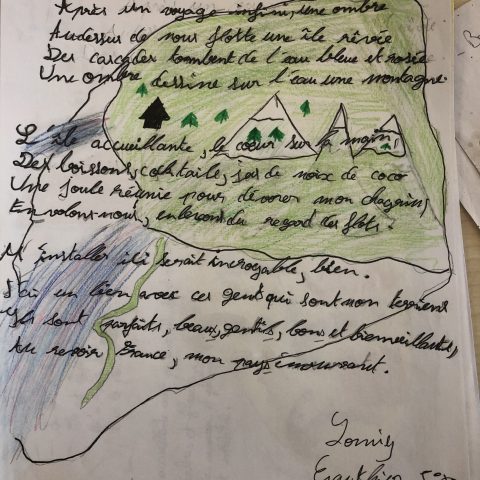 Après un voyage infini, une ombre
Audessus de nous flotte une île rêvée
Des cascades tombent de l'eau bleue et rosée
Une ombre dessine sur l'eau une montagne.
L'île accueillante, le cœur sur la main,
Des boissons, cocktails, jus de noix de coco
Une foule réunie pour dévorer mon chagrin,
Envolons-nous, en buvant du regard les flots.
M'installer ici serait incroyable, bien.
J'ai un lien avec ces gens qui sont mon terrien
Ils sont parfaits, beaux, gentils, bons et bienveillants,
Au revoir France, mon pays émouvant.